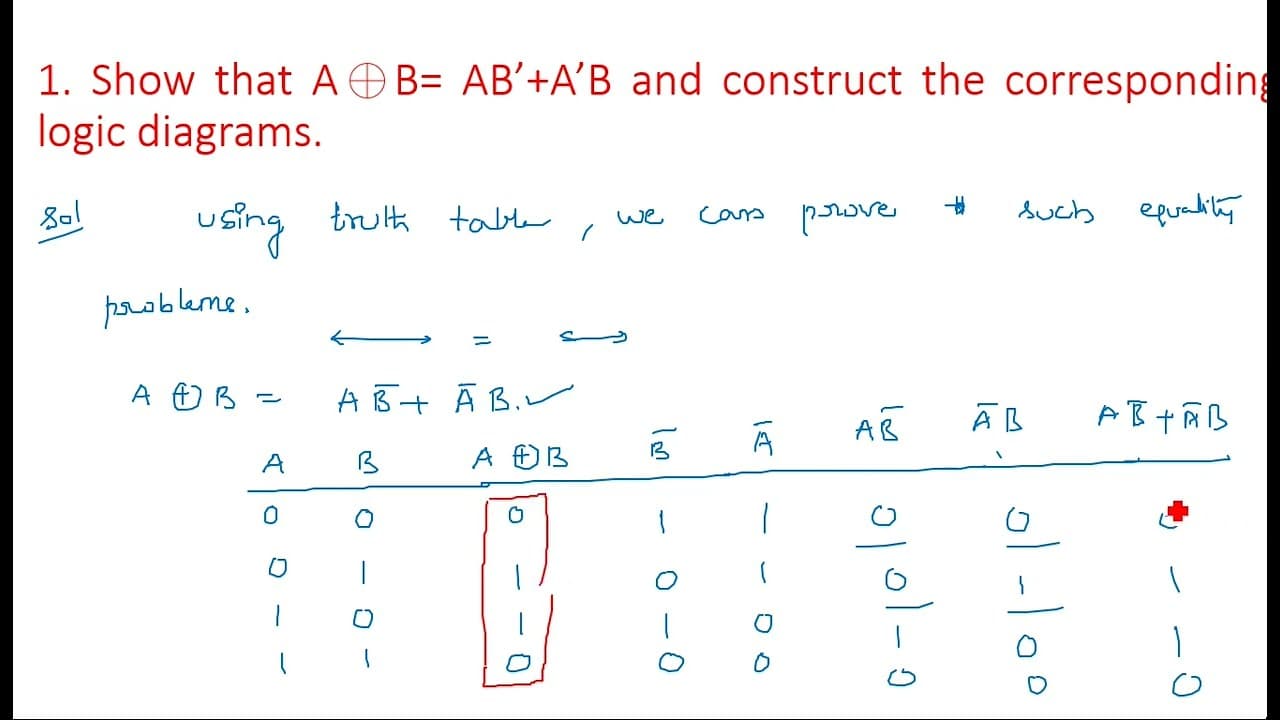 1. Show that A⊕B= AB’+A’B and construct the corresponding
logic diagrams.
Sol using truth table, we can prove such equality
problems.
=
A ⊕ B = A B̅ + A̅ B. ✓
A B A ⊕ B B̅ A̅ A B̅ A̅ B A B̅ + A̅ B
0 0 0 1 1 0 0
0 1 1 0 1 0 1 1
1 0 1 1 0 1 0 1
1 1 0 0 0 0 0 0